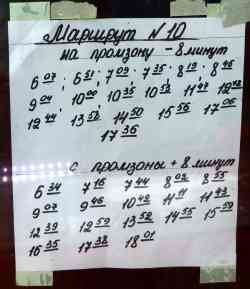 Маршрут №10
на промзону - 8 минут
6 07; 6 51; 7 09; 7 35; 8 19; 8 46
9 04; 10 00; 10 35; 10 53; 11 47
12 44 13 52 14 50 15 56 17 06
17 36
с промзоны + 8 минут
6 34 7 16 7 44 8 02 8 55
9 07 9 46 10 42 11 11 11 43
12 39 12 59 13 52 14 55 15 59
16 35 17 38 18 01